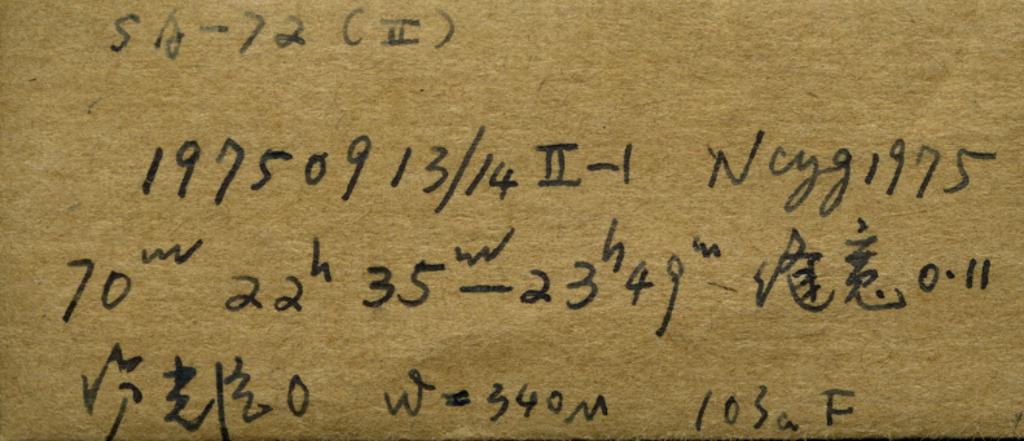 SA-72 (II)
19750913/14 II-1 N Cyg 1975
70m 22h 35m-23h49m 缝宽 0.11
光 0 W=340μ 103a F